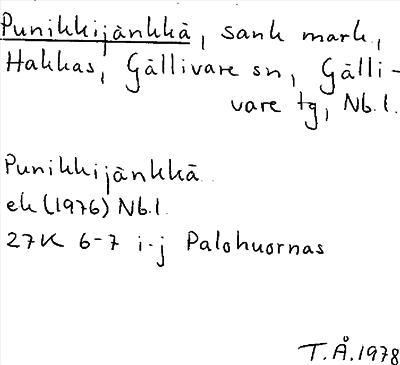 Punikkijänkkä, sank mark,
Hakkas, Gällivare sn, Gälli-
vare tg, Nb.l.
Punikkijänkkä
ek (1976) Nb.l.
27K 6-7 i-j Palohuornas
T.Å.1978